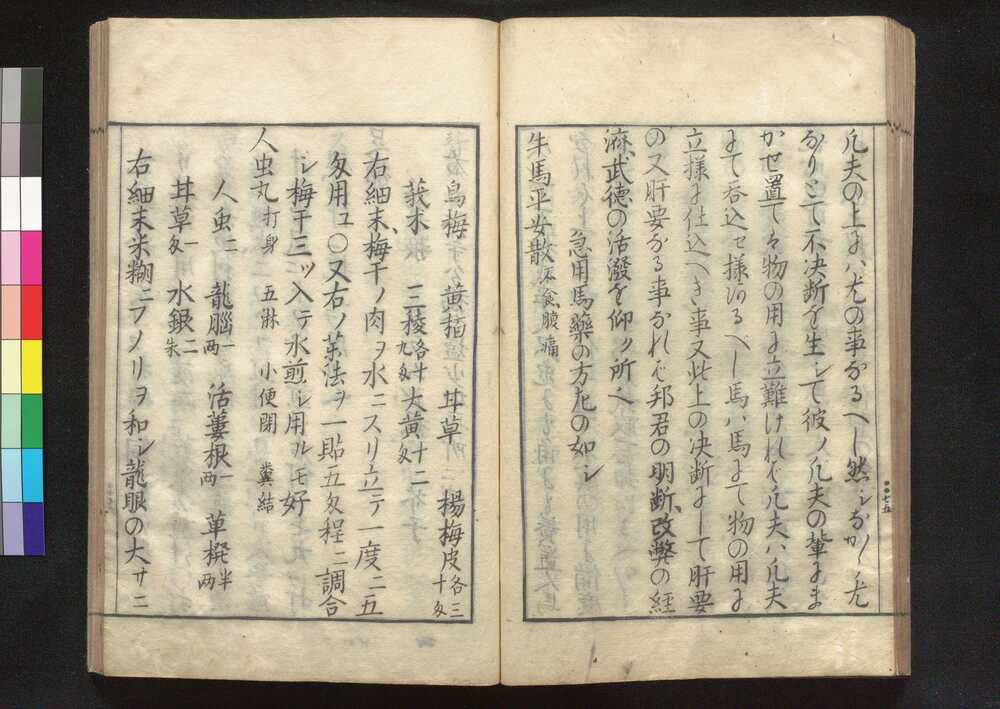 凡夫の上よハ尤の事なるへし然シながら尤
なりとて不決断を生シて彼ノ凡夫の輩にま
かせ置てハ物の用に立難けれバ凡夫ハ凡夫
にて呑込セ様有るべし馬ハ馬にて物の用に
立様に仕込へき事又此上の決断にして肝要
の又肝要なる事なれバ邦君の明断改弊の経
済武徳の活溌を仰ク所へ
急用馬藥の方尤の如シ
牛馬平安散 不食腹痛
烏梅 黄栢 甘草 楊梅皮 各三十匁
莪朮 三稜 各廿九匁 大黄 十二匁
右細末梅干ノ肉ヲ水ニスリ立テ一度ニ五
匁用ユ〇又右ノ薬法ヲ一貼五匁程ニ調合
シ梅干三ツ入テ水煎シ用ルモ好
人虫丸 打身 五淋 小便閉 糞結
人虫 二 龍腦 一両 活蔞根 一両 草撥 半両
甘草 一匁 水銀 二朱
右細末米糊ニフノリヲ和シ龍眼の大サニ